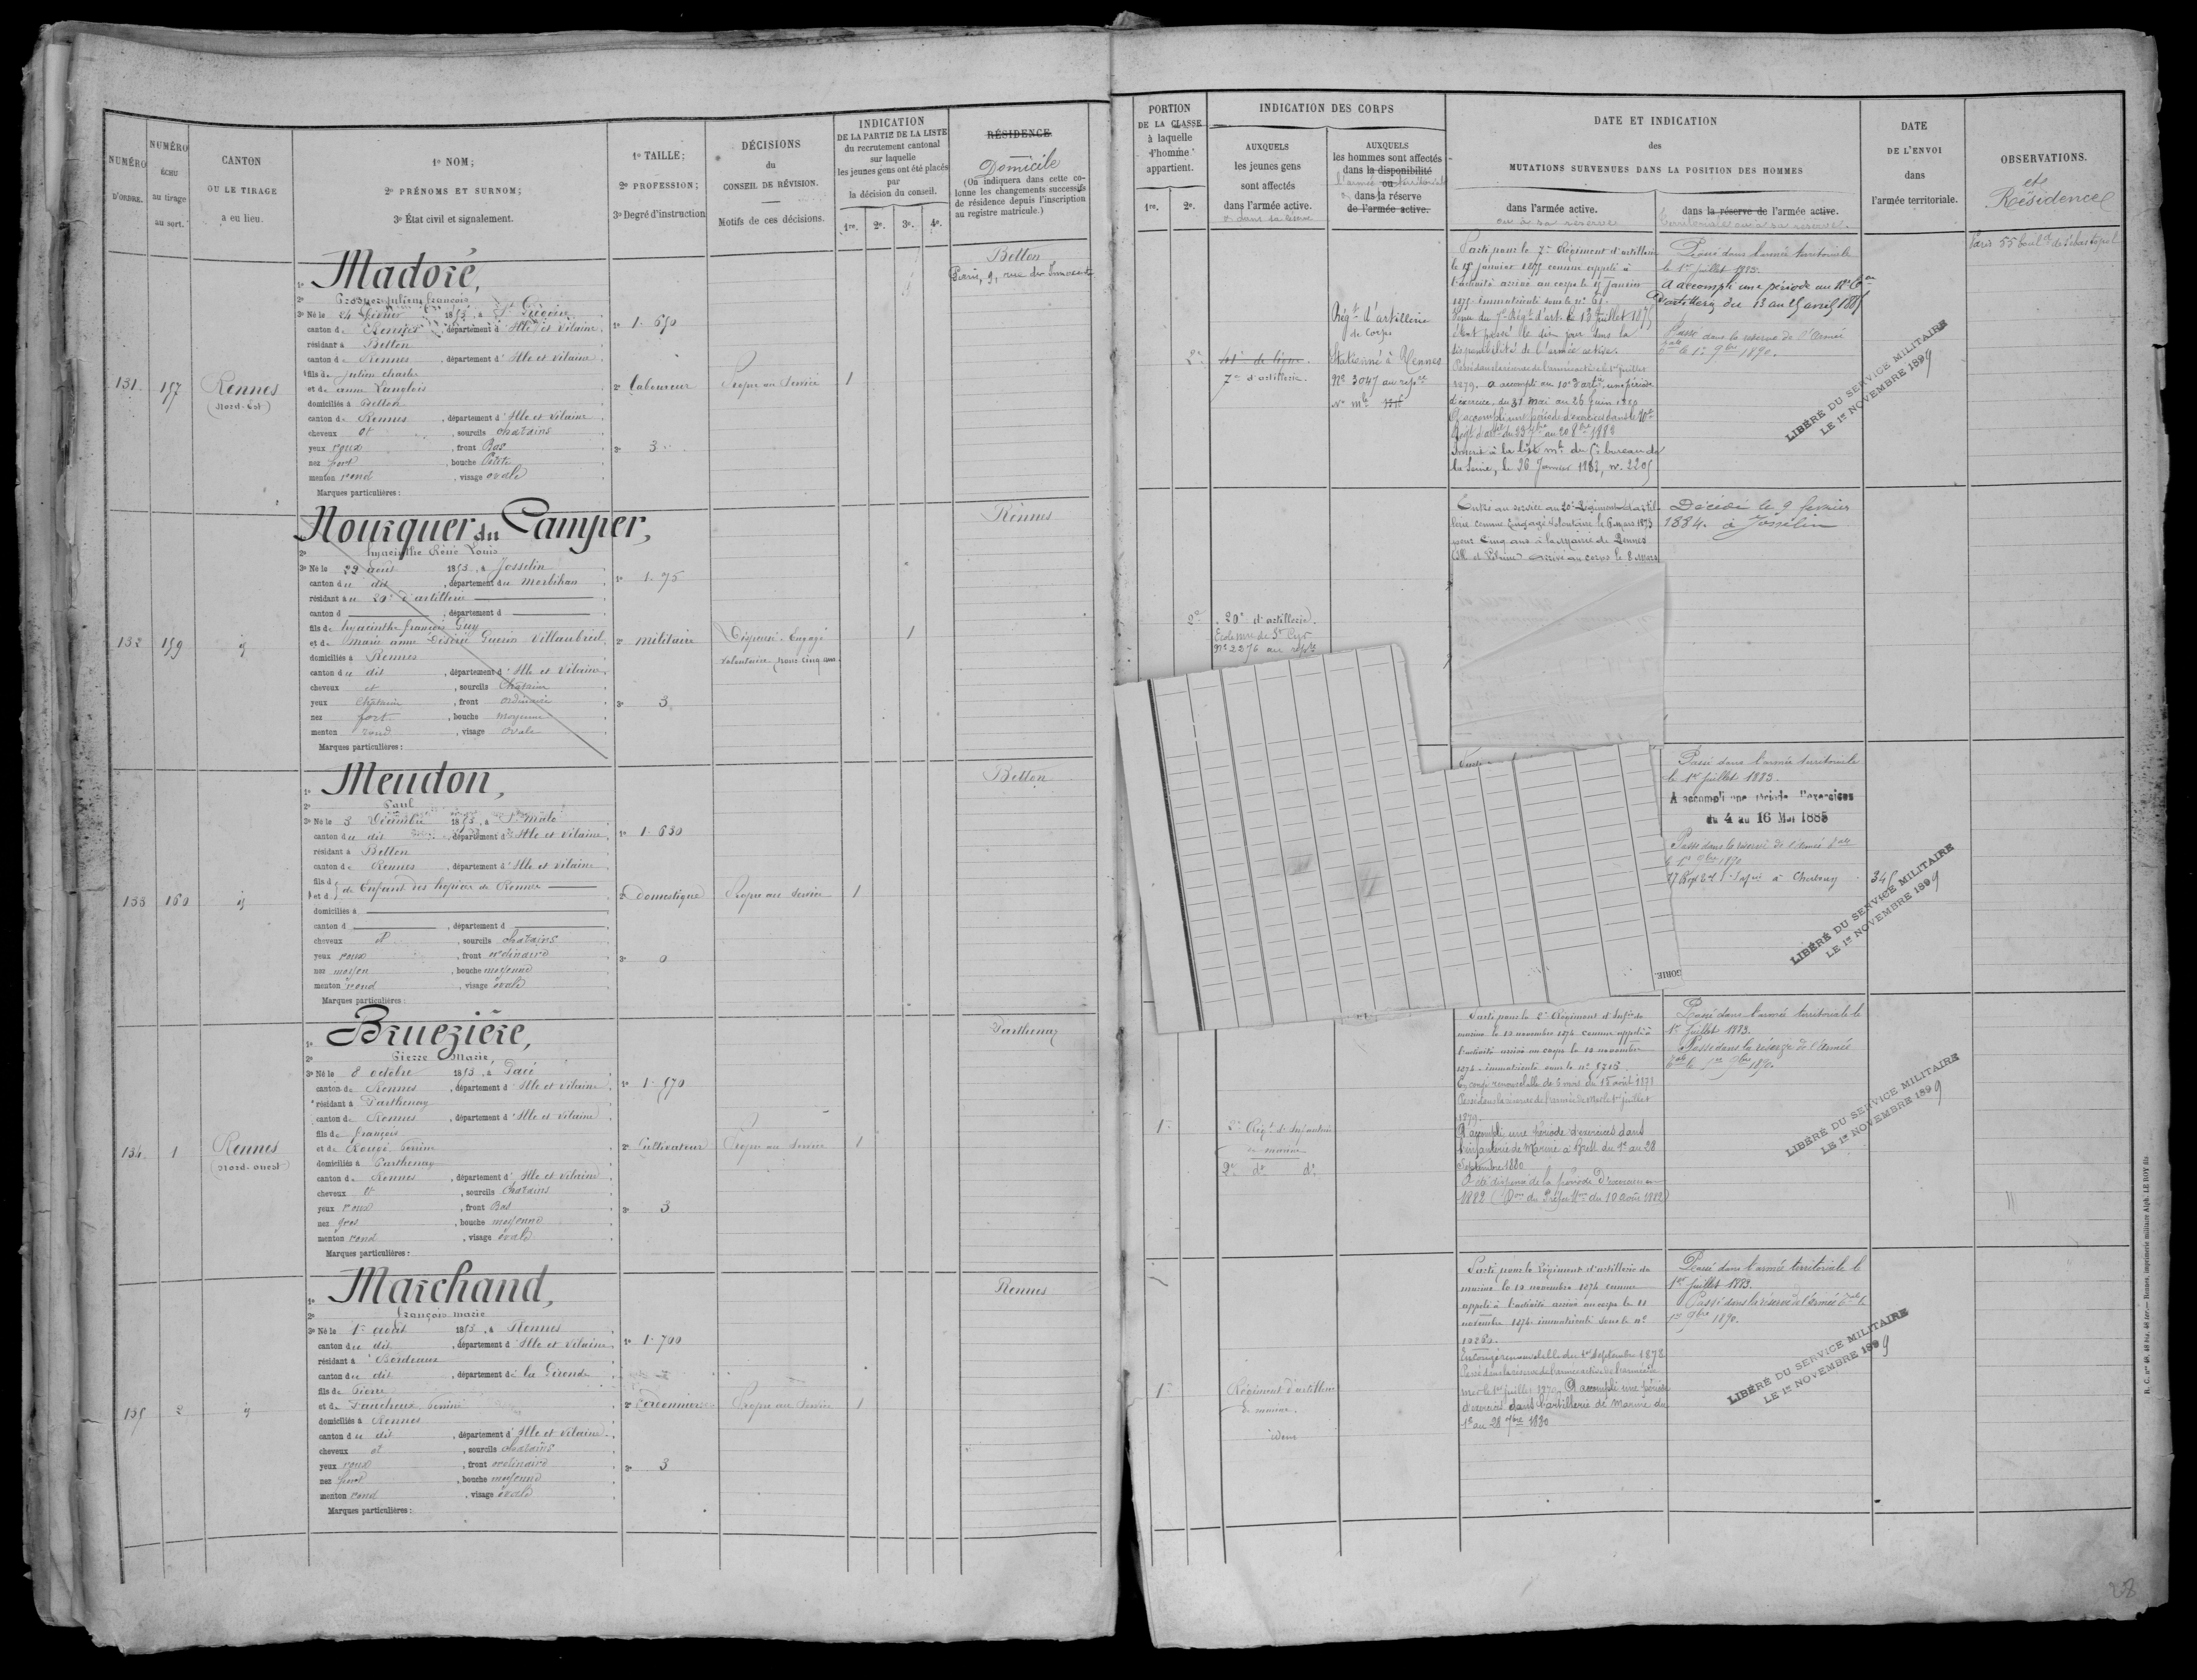 NUMÉRO
D'ORDRE.
NUMÉRO
ÉCHU
au tirage
au sort.
CANTON
OU LE TIRAGE
a eu lieu.
1º NOM;
2º PRÉNOMS ET SURNOM;
3º État civil et signalement.
1º TAILLE;
2º PROFESSION;
3º Degré d'instruction
DÉCISIONS
du
CONSEIL DE RÉVISION.
Motifs de ces décisions.
INDICATION
DE LA PARTIE DE LA LISTE
du recrutement cantonal
sur laquelle
les jeunes gens ont été placés
par
la décision du conseil.
1re. 2e. 3e. 4e.
RÉSIDENCE
Domicile
(On indiquera dans cette co-
lonne les changements successifs
de résidence depuis l'inscription
au registre matricule.)
131
157
Rennes
(Nord-Est)
1º Madoré,
2º Prosper Julien françois
3º Né le 24 février 1853, à
canton de Rennes, département d'Ille et Vilaine
résidant à Betton
canton de Rennes, département d'Ille et Vilaine
fils de julien charles
et de anne Langlois
domiciliés à Betton
canton de Rennes, département d'Ille et Vilaine
cheveux et, sourcils chatains
yeux roux, front Bas
nez fort, bouche Petite
menton rond, visage ovale
Marques particulières:
1º 1.650
2º laboureur
3º 3
Propre au Service
1
Betton
Paris, 9, rue des Innocents
132
159
id
Nourquer du Camper,
2º hyacinthe René Louis
3º Né le 29 août 1853, à Josselin
canton du dit, département du Morbihan
résidant au 20e d'artillerie
canton d , département d
fils de hyacinthe françois Guy
et de Marie anne Désirée Guérin Villaubreil
domiciliés à Rennes
canton du dit, département d'Ille et Vilaine
cheveux et, sourcils Chatain
yeux Chatain, front ordinaire
nez fort, bouche moyenne
menton rond, visage Ovale
Marques particulières:
1º 1.75
2º militaire
3º 3
Dispensé. Engagé
volontaire pour cinq ans
1
Rennes
133
160
id
1º Meudon,
2º Paul
3º Né le 3 Décembre 1853, à St Malo
canton du dit, département d'Ille et Vilaine
résidant à Betton
canton de Rennes, département d'Ille et Vilaine
fils d
et d de Enfant des hospices de Rennes
domiciliés à
canton d , département d
cheveux et, sourcils chatains
yeux roux, front ordinaire
nez moyen, bouche moyenne
menton rond, visage ovale
Marques particulières:
1º 1.630
2º Domestique
3º 0
Propre au Service
1
Betton
134
1
Rennes
(Nord-ouest)
1º Bruezière,
2º Pierre Marie,
3º Né le 8 octobre 1853, à Pacé
canton de Rennes, département d'Ille et Vilaine
résidant à Parthenay
canton de Rennes, département d'Ille et Vilaine
fils de françois
et de Rougé Perrine
domiciliés à Parthenay
canton de Rennes, département d'Ille et Vilaine
cheveux et, sourcils Chatains
yeux roux, front Bas
nez gros, bouche moyenne
menton rond, visage ovale
Marques particulières:
1º 1.570
2º Cultivateur
3º 3
Propre au Service
1
Parthenay
135
2
id
1º Marchand,
2º françois marie
3º Né le 1er août 1853, à Rennes
canton du dit, département d'Ille et Vilaine
résidant à Bordeaux
canton du dit, département de la Gironde
fils de Pierre
et de Faucheux Perrine
domiciliés à Rennes
canton du dit, département d'Ille et Vilaine
cheveux et, sourcils chatains
yeux roux, front ordinaire
nez fort, bouche moyenne
menton rond, visage ovale
Marques particulières:
1º 1.700
2º Cordonnier
3º 3
Propre au Service
1
Rennes
PORTION
DE LA CLASSE
à laquelle
l'homme
appartient.
1re. 2e.
INDICATION DES CORPS
AUXQUELS
les jeunes gens
sont affectés
dans l'armée active.
AUXQUELS
les hommes sont affectés
dans la disponibilité
ou
dans la réserve
de l'armée active.
DATE ET INDICATION
des
MUTATIONS SURVENUES DANS LA POSITION DES HOMMES
dans l'armée active.
ou à sa réserve
dans la réserve de l'armée active.
territoriale ou à sa réserve.
DATE
DE L'ENVOI
dans
l'armée territoriale.
OBSERVATIONS.
et
Résidence
2e
41e de ligne.
7e d'artillerie.
Régt d'artillerie
de Corps
Stationné à Rennes
Nº 3047 au repre
Parti pour le 7e Régiment d'artillerie
le janvier 1875 comme appelé à
l'activité arrivé au corps le janvier
1875 immatriculé sous le nº 61.
Venu du 7e Régt d'art. le 13 juillet 1875
étant passé le dix jour dans la
disponibilité de l'armée active.
Passé dans la réserve de l'armée active le 1er juillet
1879. a accompli au 10e d'artie une période
d'exercice du 31 Mai au 26 juin 1880
A accompli une période d'exercices dans le 10e
Régt d'artie du 23 7bre au 20 8bre 1882
Inscrit à la liste mle du 5e bureau de
la Seine, le 26 Janvier 1883, nº 2205
Passé dans l'armée territoriale
le 1er juillet 1883.
A accompli une période au
d'artillerie du 13 au 25 avril 1885
Passé dans la réserve de l'Armée
tale le 1er 9bre 1890.
LIBÉRÉ DU SERVICE MILITAIRE
LE 1er NOVEMBRE 1899
Paris 55 bould de Sébastopol
2e
20e d'artillerie.
Ecole mre de St Cyr
Nº 2276 au repre
Entré au service au 20e Régiment d'artil-
lerie comme Engagé Volontaire le 6 mars 1873
pour cinq ans à la Mairie de Rennes
(Ille et Vilaine) arrivé au corps le 8 Mars
Décédé le 9 février
1884. à Josselin
GORIE.
Passé dans l'armée territoriale
le 1er juillet 1883.
A accompli une période d'exercices
du 4 au 16 Mai 1885
Passé dans la réserve de l'Armée tale
le 1er 9bre 1890
à Cherbourg
345
LIBÉRÉ DU SERVICE MILITAIRE
LE 1er NOVEMBRE 1899
1e
2e Régt d'Infanterie
de marine
2e dº dº
Parti pour le 2e Régiment d'Infie de
marine le 10 novembre 1874 comme appelé à
l'activité arrivé au corps le 12 novembre
1874 immatriculé sous le nº 5715.
En congé renouvelable de 6 mois du 15 août 1878
Passé dans la réserve de l'armée de Mer le 1er juillet
1879.
A accompli une Période d'exercices dans
l'infanterie de Marine à Brest du 1er au 28
Septembre 1880
A été dispensé de la période d'exercices en
1882 (Don du Préfet Mme du 10 Août 1882)
Passé dans l'armée territoriale le
1er Juillet 1883.
Passé dans la réserve de l'Armée
tale le 1er 9bre 1890.
LIBÉRÉ DU SERVICE MILITAIRE
LE 1er NOVEMBRE 1899
1e
Régiment d'artillerie
de marine.
idem
Parti pour le Régiment d'artillerie de
marine le 10 novembre 1874 comme
appelé à l'activité arrivé au corps le 11
novembre 1874 immatriculé sous le nº
En congé renouvelable du 1er Septembre 1878
mer le 1er juillet 1879. A accompli une période
d'exercices dans l'artillerie de Marine du
1er au 28 7bre 1880
Passé dans l'armée territoriale le
1er Juillet 1883.
Passé dans la réserve de l'Armée tale le
1er 9bre 1890.
LIBÉRÉ DU SERVICE MILITAIRE
LE 1er NOVEMBRE 1899
Rennes, imprimerie militaire Alph. LE ROY fils
28